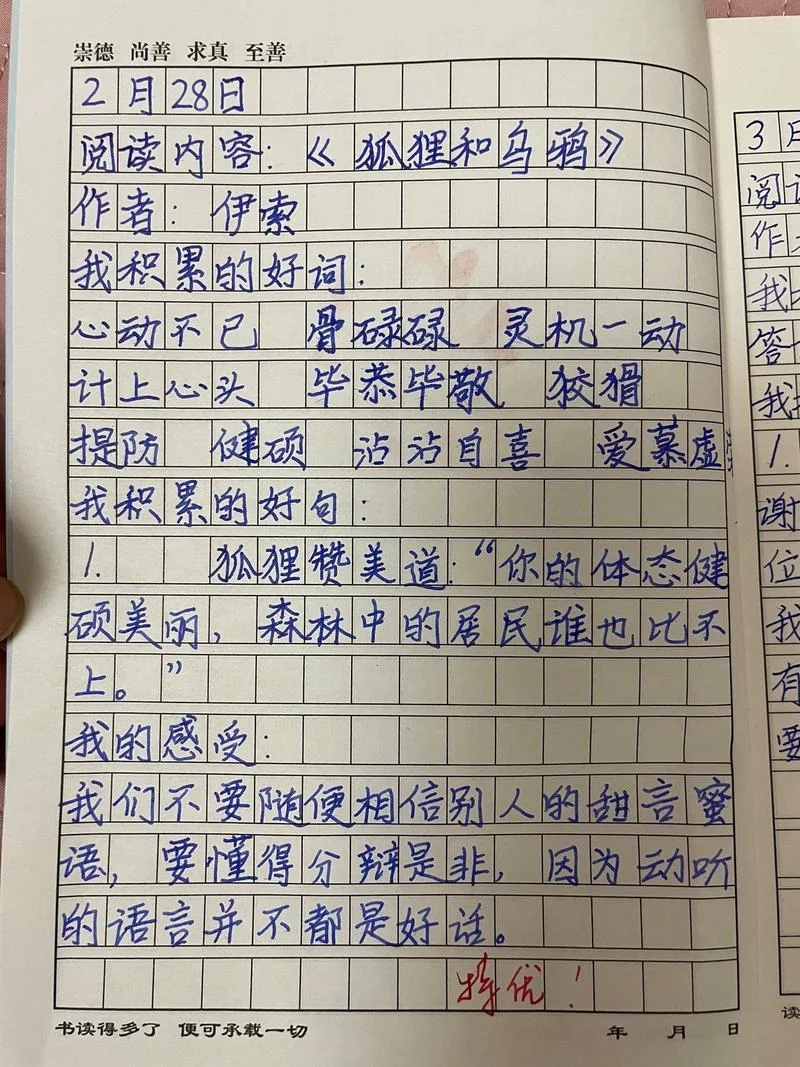 崇德 尚善 求真 至善
2月28日
阅读内容：《狐狸和乌鸦》
作者：伊索
我积累的好词：
心动不已 骨碌碌 灵机一动
计上心头 毕恭毕敬 狡猾
提防 健硕 沾沾自喜 爱慕虚荣
我积累的好句：
1. 狐狸赞美道：“你的体态健
硕美丽，森林中的居民谁也比不
上。”
我的感受：
我们不要随便相信别人的甜言蜜
语，要懂得分辩是非，因为动听
的语言并不都是好话。
特优！
书读得多了 便可承载一切
年 月 日
3月
阅读
作
我
答
我
1.
谢
位
我
有
要
读